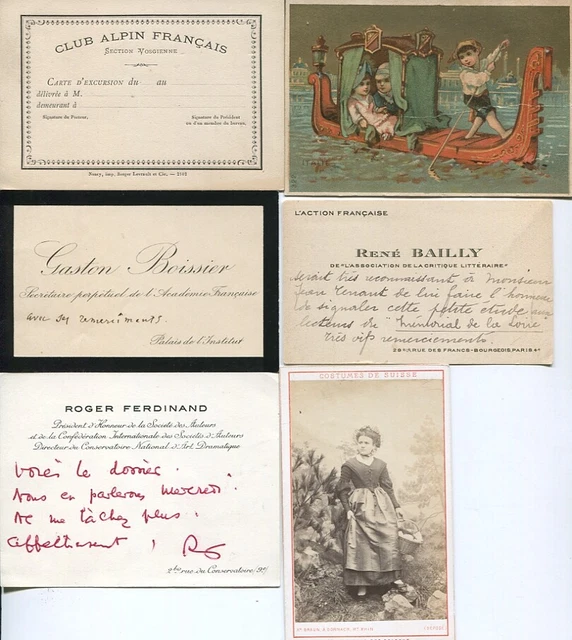 CLUB ALPIN FRANÇAIS
SECTION VOSGIENNE
CARTE D'EXCURSION du au
délivrée à M.
demeurant à
Signature du Porteur, Signature du Président
ou d'un membre du bureau,
Nancy, imp. Berger-Levrault et Cie. — 2102
Gaston Boissier
Secrétaire perpétuel de l'Académie Française
avec ses remerciments
Palais de l'Institut
L'ACTION FRANÇAISE
RENÉ BAILLY
DE "L'ASSOCIATION DE LA CRITIQUE LITTÉRAIRE"
serait très reconnaissant à Monsieur
Jean Tenant de lui faire l'honneur
de signaler cette petite étude aux
lecteurs du "Memorial de la Loire"
très vifs remerciements.
29 RUE DES FRANCS-BOURGEOIS, PARIS 4e
ROGER FERDINAND
Président d'Honneur de la Société des Auteurs
et de la Confédération Internationale des Sociétés d'Auteurs
Directeur du Conservatoire National d'Art Dramatique
Voici le dossier.
Nous en parlerons mercredi.
Ne me lâchez plus.
Affectueusement, RF
2bis rue du Conservatoire (9e)
COSTUMES DE SUISSE
DÉPOSÉ